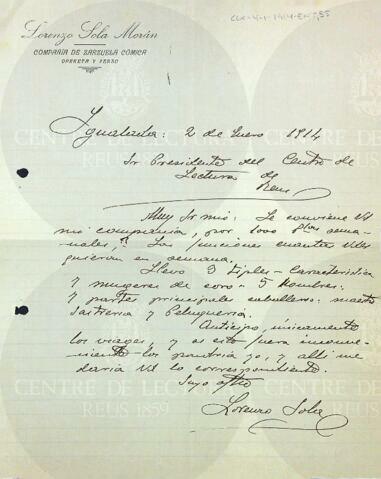 Lorenzo Sola Morán
COMPAÑIA DE ZARZUELA COMICA
OPERETA Y VERSO
Igualada: 2 de Enero 1914
Sr Presidente del Centro de
Lectura de
Reus
Muy Sr mio: Le conviene Vd
mi compañia, por 1000 ptas sema-
nales,? Las funciones cuantas Vdes
quieran en semana.
Llevo 3 tiples - Caracteristica
7 mugeres de coro - 5 hombres.
y partes principales caballeros: maestro
Sastreria y Peluqueria.
Anticipo, únicamente
los viages, y si esto fuera inconve-
niente - los pondria yo, y alli me
daria Vd lo correspondiente.
Suyo affmo
Lorenzo Sola
CENTRE DE LECTURA
REUS 1859